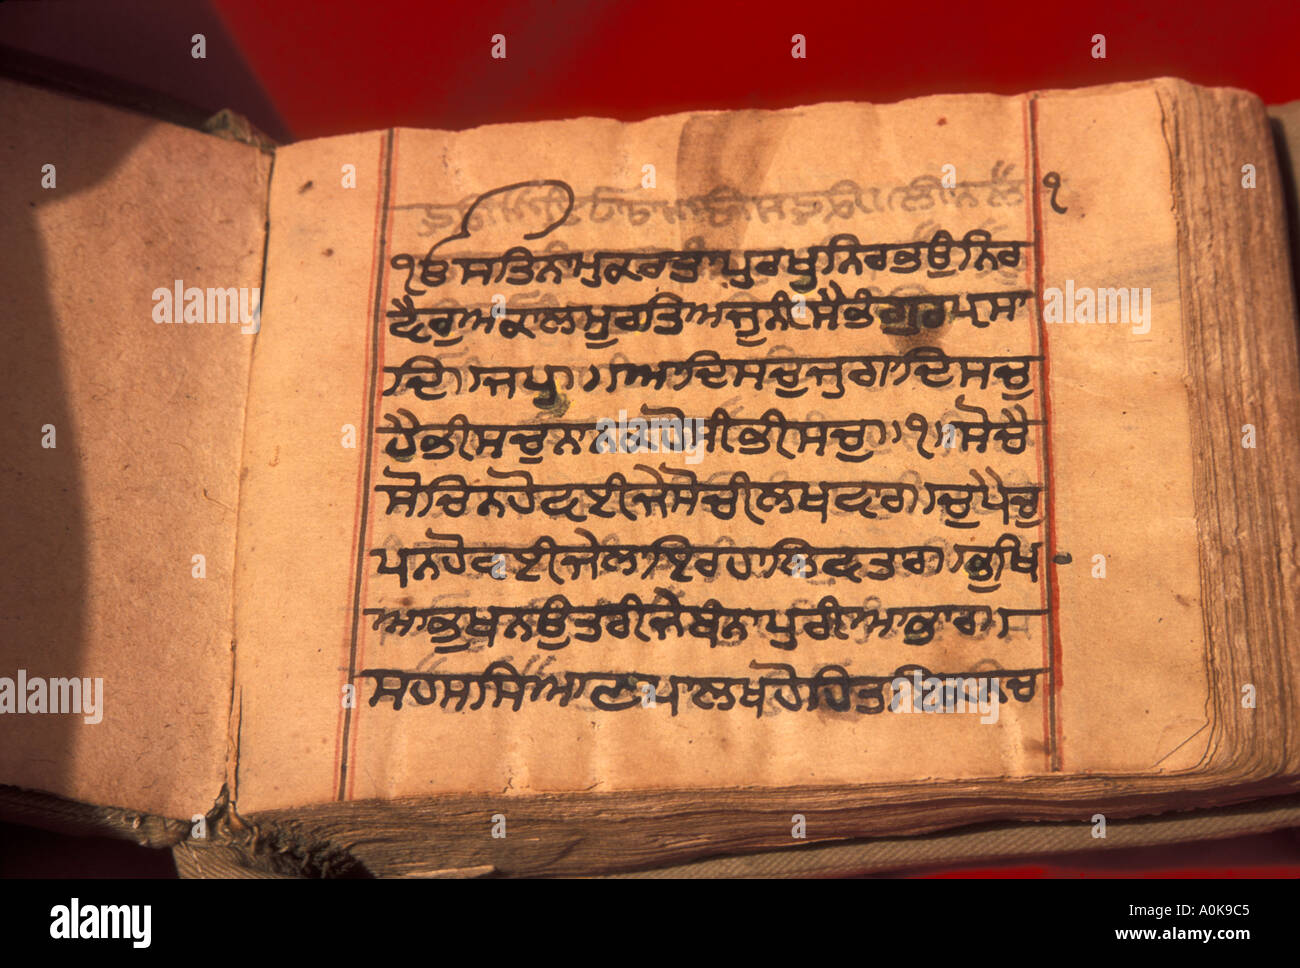 ੧
ੴਸਤਿਨਾਮੁਕਰਤਾਪੁਰਖੁਨਿਰਭਉਨਿਰ
ਵੈਰੁਅਕਾਲਮੂਰਤਿਅਜੂਨੀਸੈਭੰਗੁਰਪ੍ਰਸਾ
ਦਿ॥ਜਪੁ॥ਆਦਿਸਚੁਜੁਗਾਦਿਸਚੁ
ਹੈਭੀਸਚੁਨਾਨਕਹੋਸੀਭੀਸਚੁ॥੧॥ਸੋਚੈ
ਸੋਚਿਨਹੋਵਈਜੇਸੋਚੀਲਖਵਾਰ॥ਚੁਪੈਚੁ
ਪਨਹੋਵਈਜੇਲਾਇਰਹਾਲਿਵਤਾਰ॥ਭੁਖਿ
ਆਭੁਖਨਉਤਰੀਜੇਬੰਨਾਪੁਰੀਆਭਾਰ॥
ਸਹਸਸਿਆਣਪਾਲਖਹੋਹਿਤਇਕਨਚ
alamy
Image ID: A0K9C5
www.alamy.com